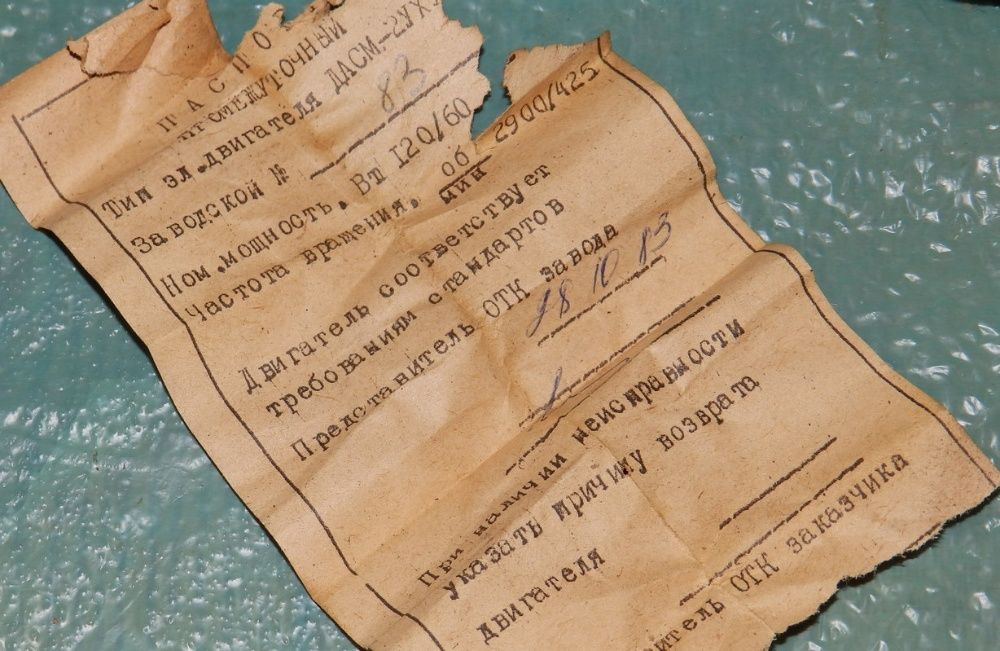 П А С П О
ПРОМЕЖУТОЧНЫЙ
Тип эл.двигателя ДАСМ-2УХ
Заводской № 83
Ном.мощность. Вт 120/60
Частота вращения. об мин 2900/425
Двигатель соответствует
требованиям стандартов
Представитель ОТК завода
28 10 83
При наличии неисправности
указать причину возврата
двигателя
итель ОТК заказчика